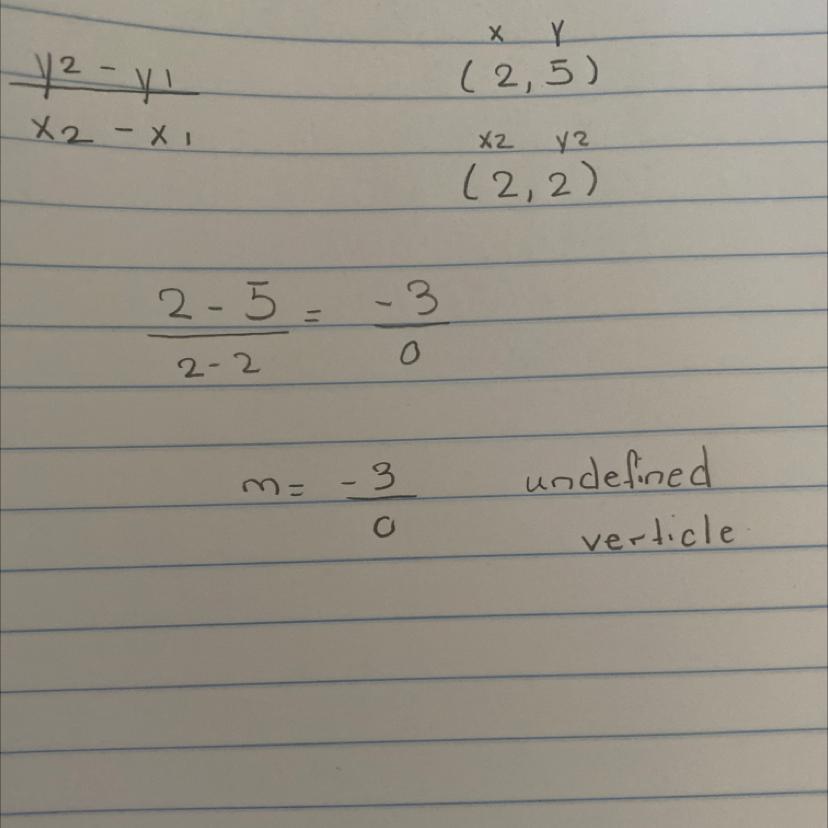 x y
y2 - y1 (2, 5)
x2 - x1
x2 y2
(2, 2)
2 - 5 = -3
2 - 2 0
m = -3 undefined
0
verticle